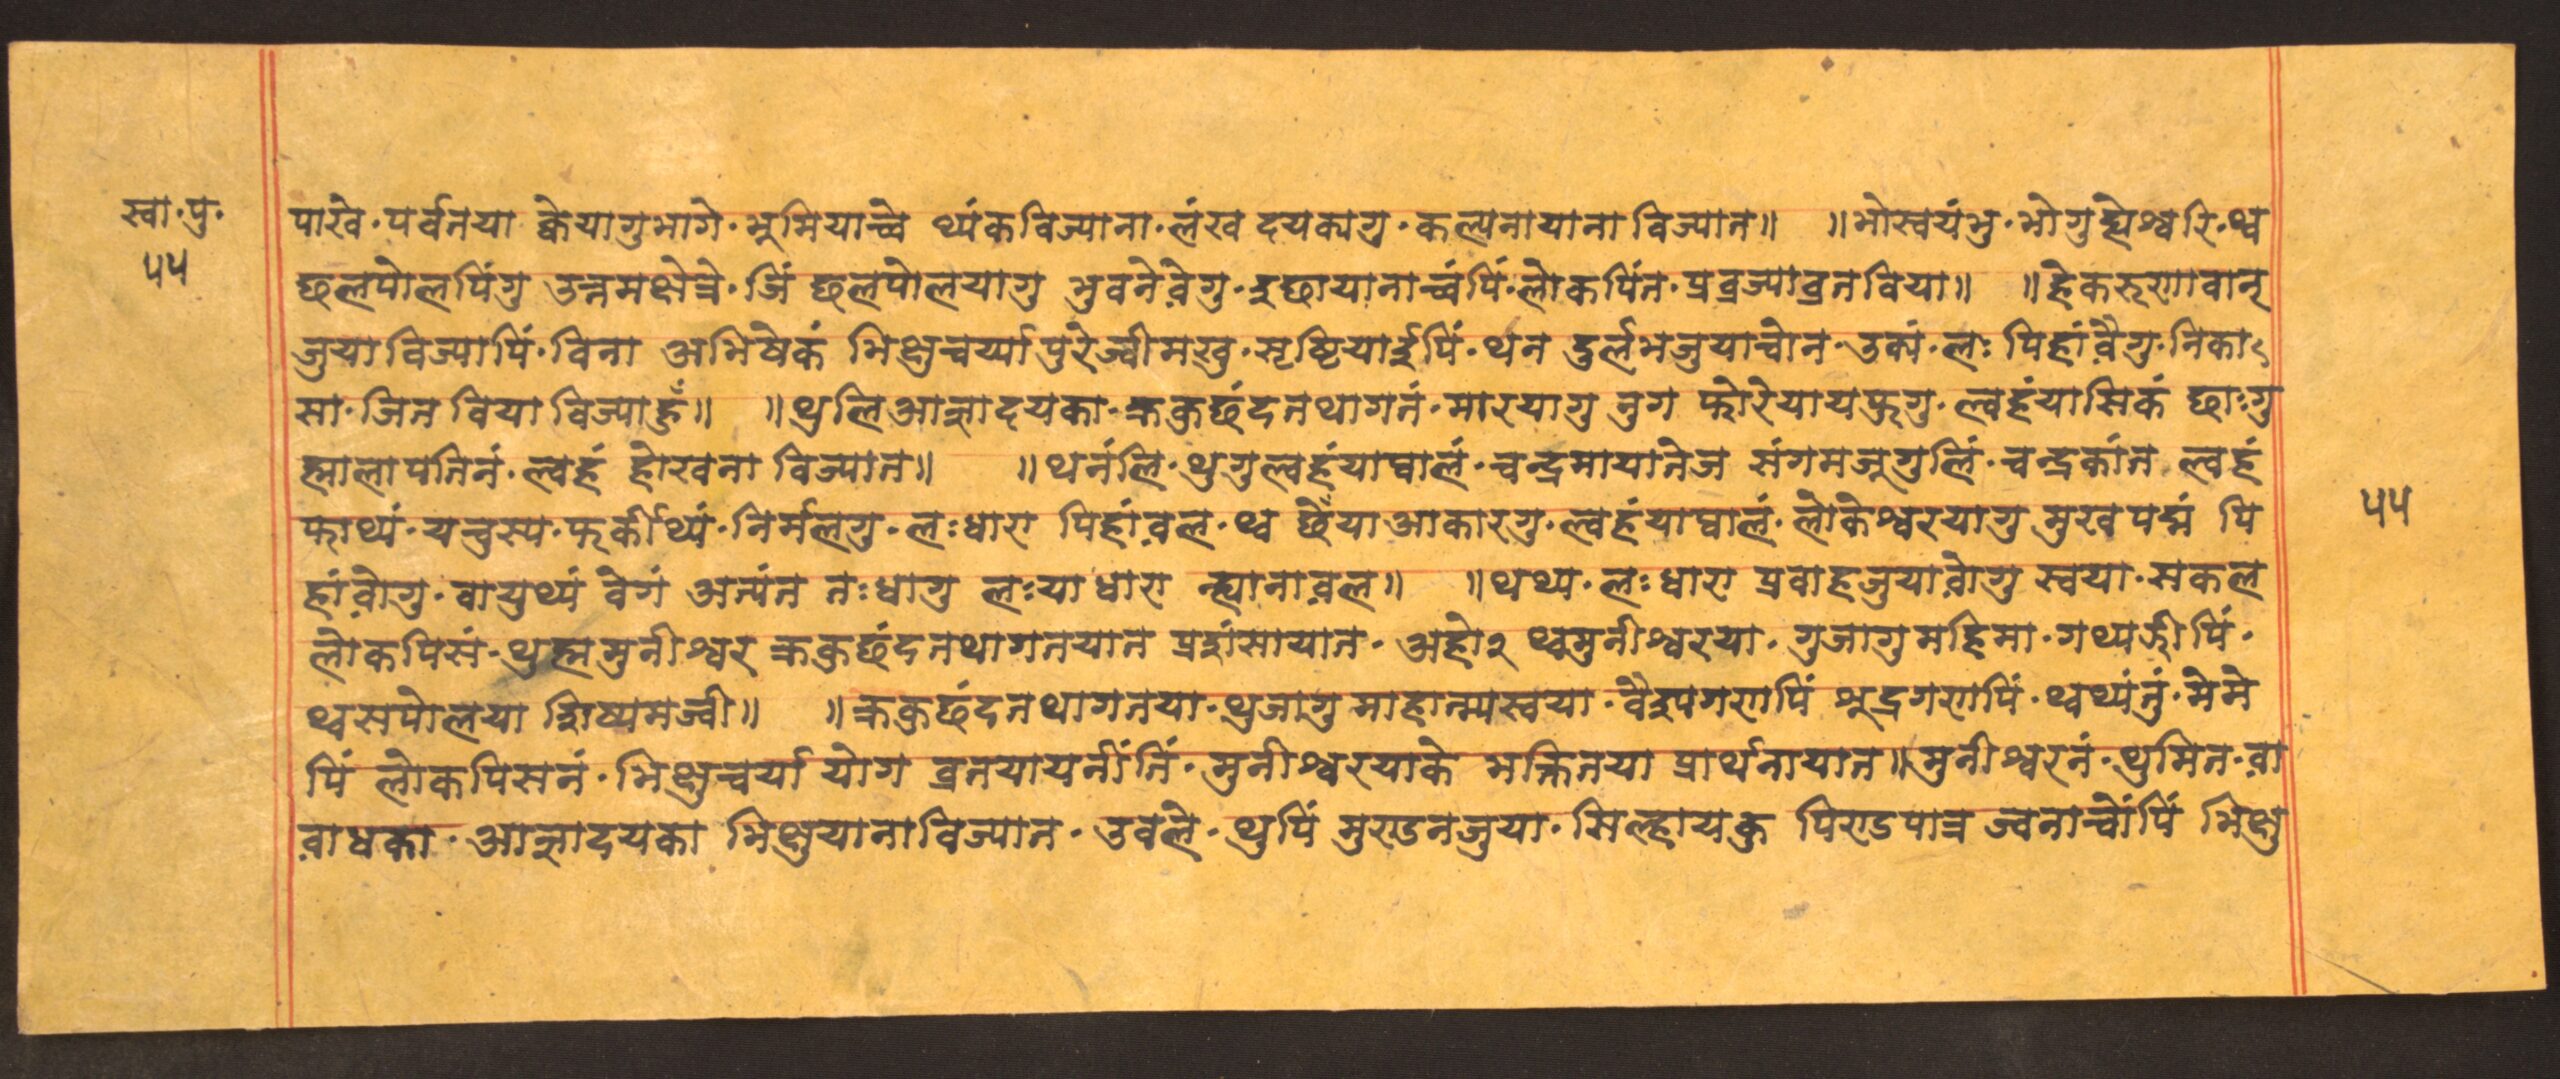 स्वा·पु·
५५
पाखे·पर्वतया च्वेयागुभागे·भूमियाच्वे थ्यंकविज्याना·लंख दयक्यगु·कल्पनायाना विज्यात॥ ॥भोस्वयंभु·भोगुह्येश्वरि·थ्व
छलपोलपिंगु उत्तमक्षेत्रे·जिं छलपोलयागु भुवने वेगु·इछायानाच्वंपिं·लोकपिंत·प्रव्रज्याव्रतविया॥ ॥हेकरूणावान्
जुयाविज्यापिं·विना अभिषेकं भिक्षुचर्य्या पुरेज्वीमखु·सृष्टियाईपिं·थन दुर्लभजुयाच्वोन·उक्यं·लः पिहांवैगु·निकाऽ
सा·जित विया विज्याहुँ॥ ॥थुलिआज्ञादयका·क्रकुछंदतथागतं·मारयागु नुग फोरेयायफुगु·ल्वहंयासिकं छाःगु
ह्मालापतिनं·ल्वहं होखना विज्यात॥ ॥थनंलि·थुगुल्वहंयाघालं·चन्द्रमायातेज संगमजूगुलिं·चन्द्रकांत ल्वहं
फाथ्यं·यचुस्य·फर्कीथ्यं·निर्मलगु·लःधारा पिहांवल·थ्व छैंयाआकारगु·ल्वहंयाघालं·लोकेश्वरयागु मुखपद्मं पि
हांवोगु·वायुथ्यं वेगं अत्यंत तःधागु लःयाधारा न्ह्यानावल॥ ॥थथ्य·लःधारा प्रवाहजुयावोगु स्वया·सकल
लोकपिसं·थुह्ममुनीश्वर क्रकुछंदतथागतयात प्रशंसायात·अहो२ थ्वमुनीश्वरया·गुजागुमहिमा·गथ्यझीपिं·
थ्वसपोलया शिष्यमज्वी॥ ॥क्रकुछंदतथागतया·थुजागु माहात्म्यस्वया·वैश्यगणपिं शूद्रगणपिं·थ्वथ्यंतुं·मेमे
पिं लोकपिसनं·भिक्षुचर्या योग व्रतयायनींतिं·मुनीश्वरयाके भक्तितया प्रार्थनायात॥मुनीश्वरनं·थुमित·वा
वाधका·आज्ञादयका भिक्षुयानाविज्यात·उवले·थुपिं मुण्डनजुया·सिल्हायकु पिण्डपात्र ज्वनाच्वोंपिं भिक्षु
५५